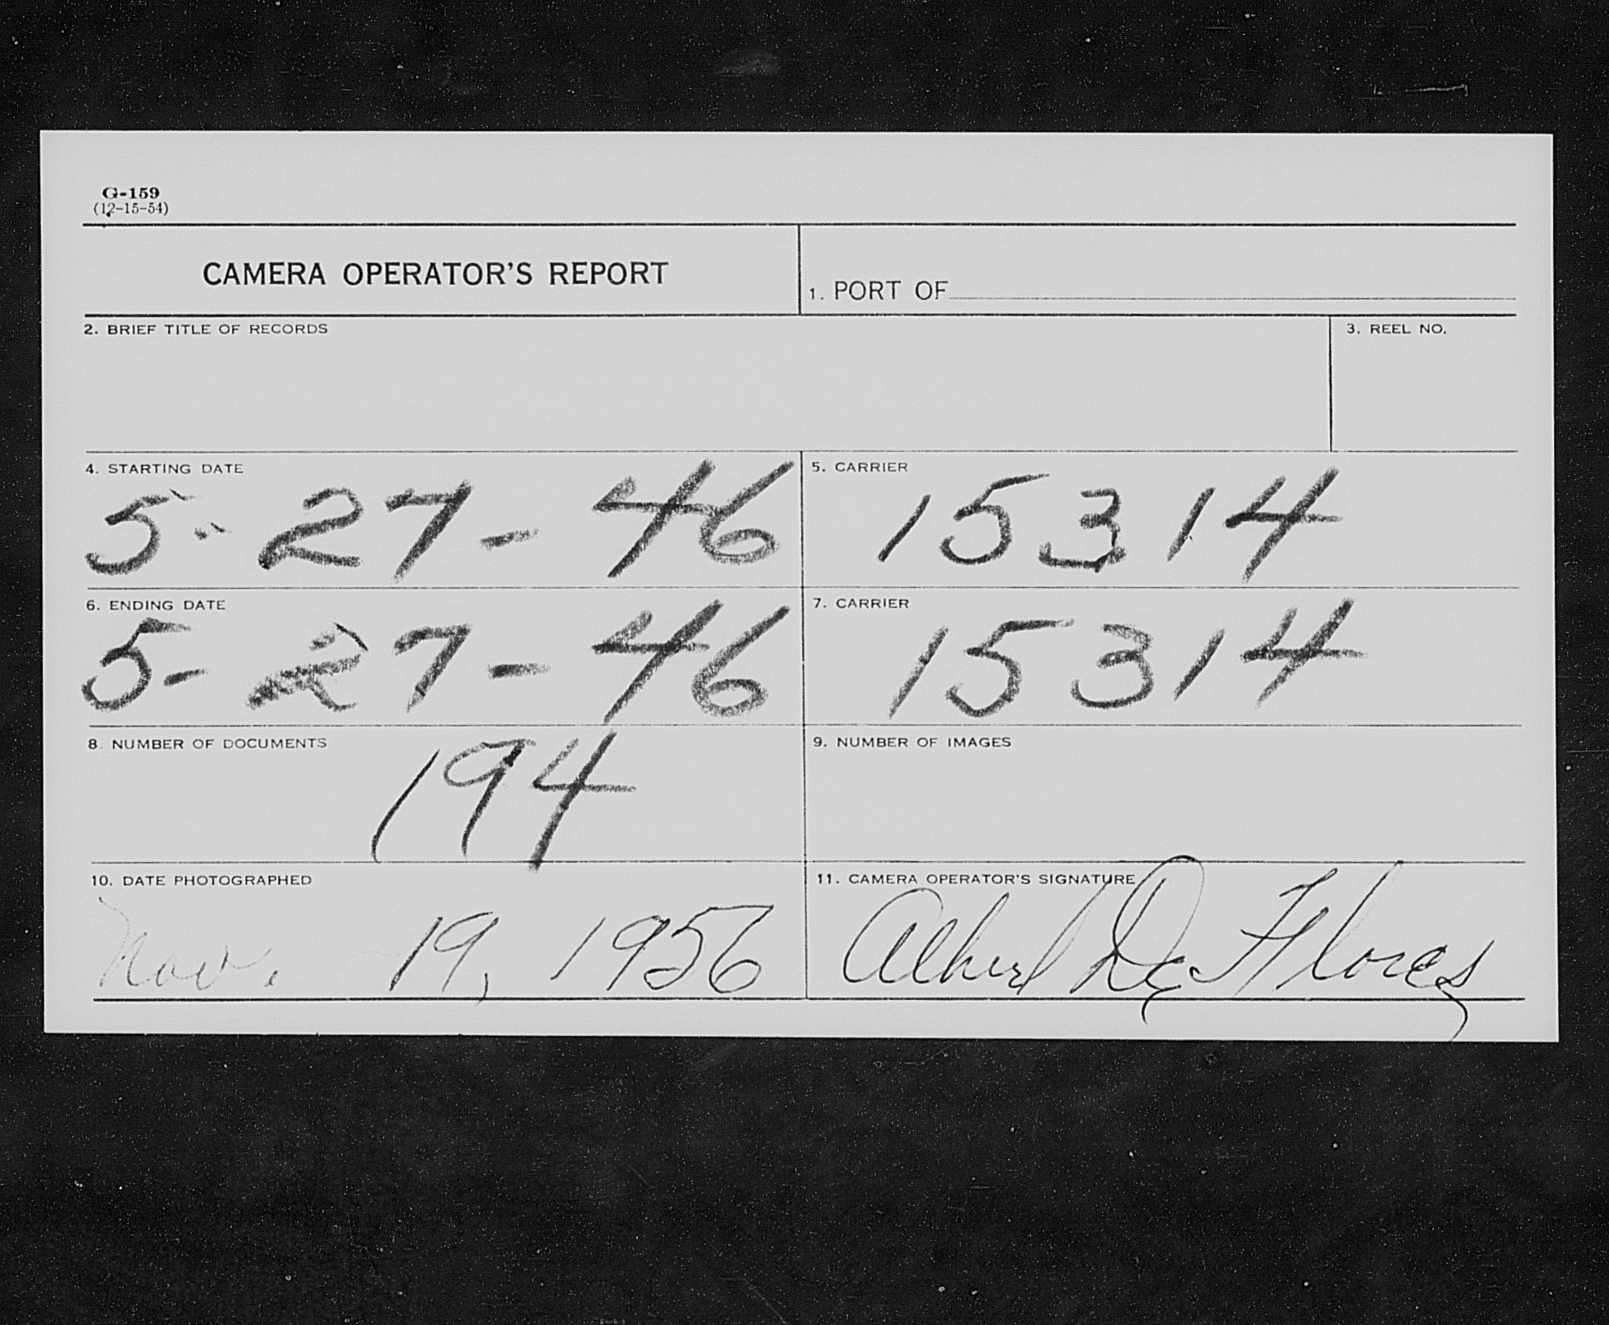 G-159
(12-15-54)
CAMERA OPERATOR'S REPORT
1. PORT OF
2. BRIEF TITLE OF RECORDS
3. REEL NO.
4. STARTING DATE
5-27-46
5. CARRIER
15314
6. ENDING DATE
5-27-46
7. CARRIER
15314
8. NUMBER OF DOCUMENTS
194
9. NUMBER OF IMAGES
10. DATE PHOTOGRAPHED
Nov. 19, 1956
11. CAMERA OPERATOR'S SIGNATURE
Albert De Flores